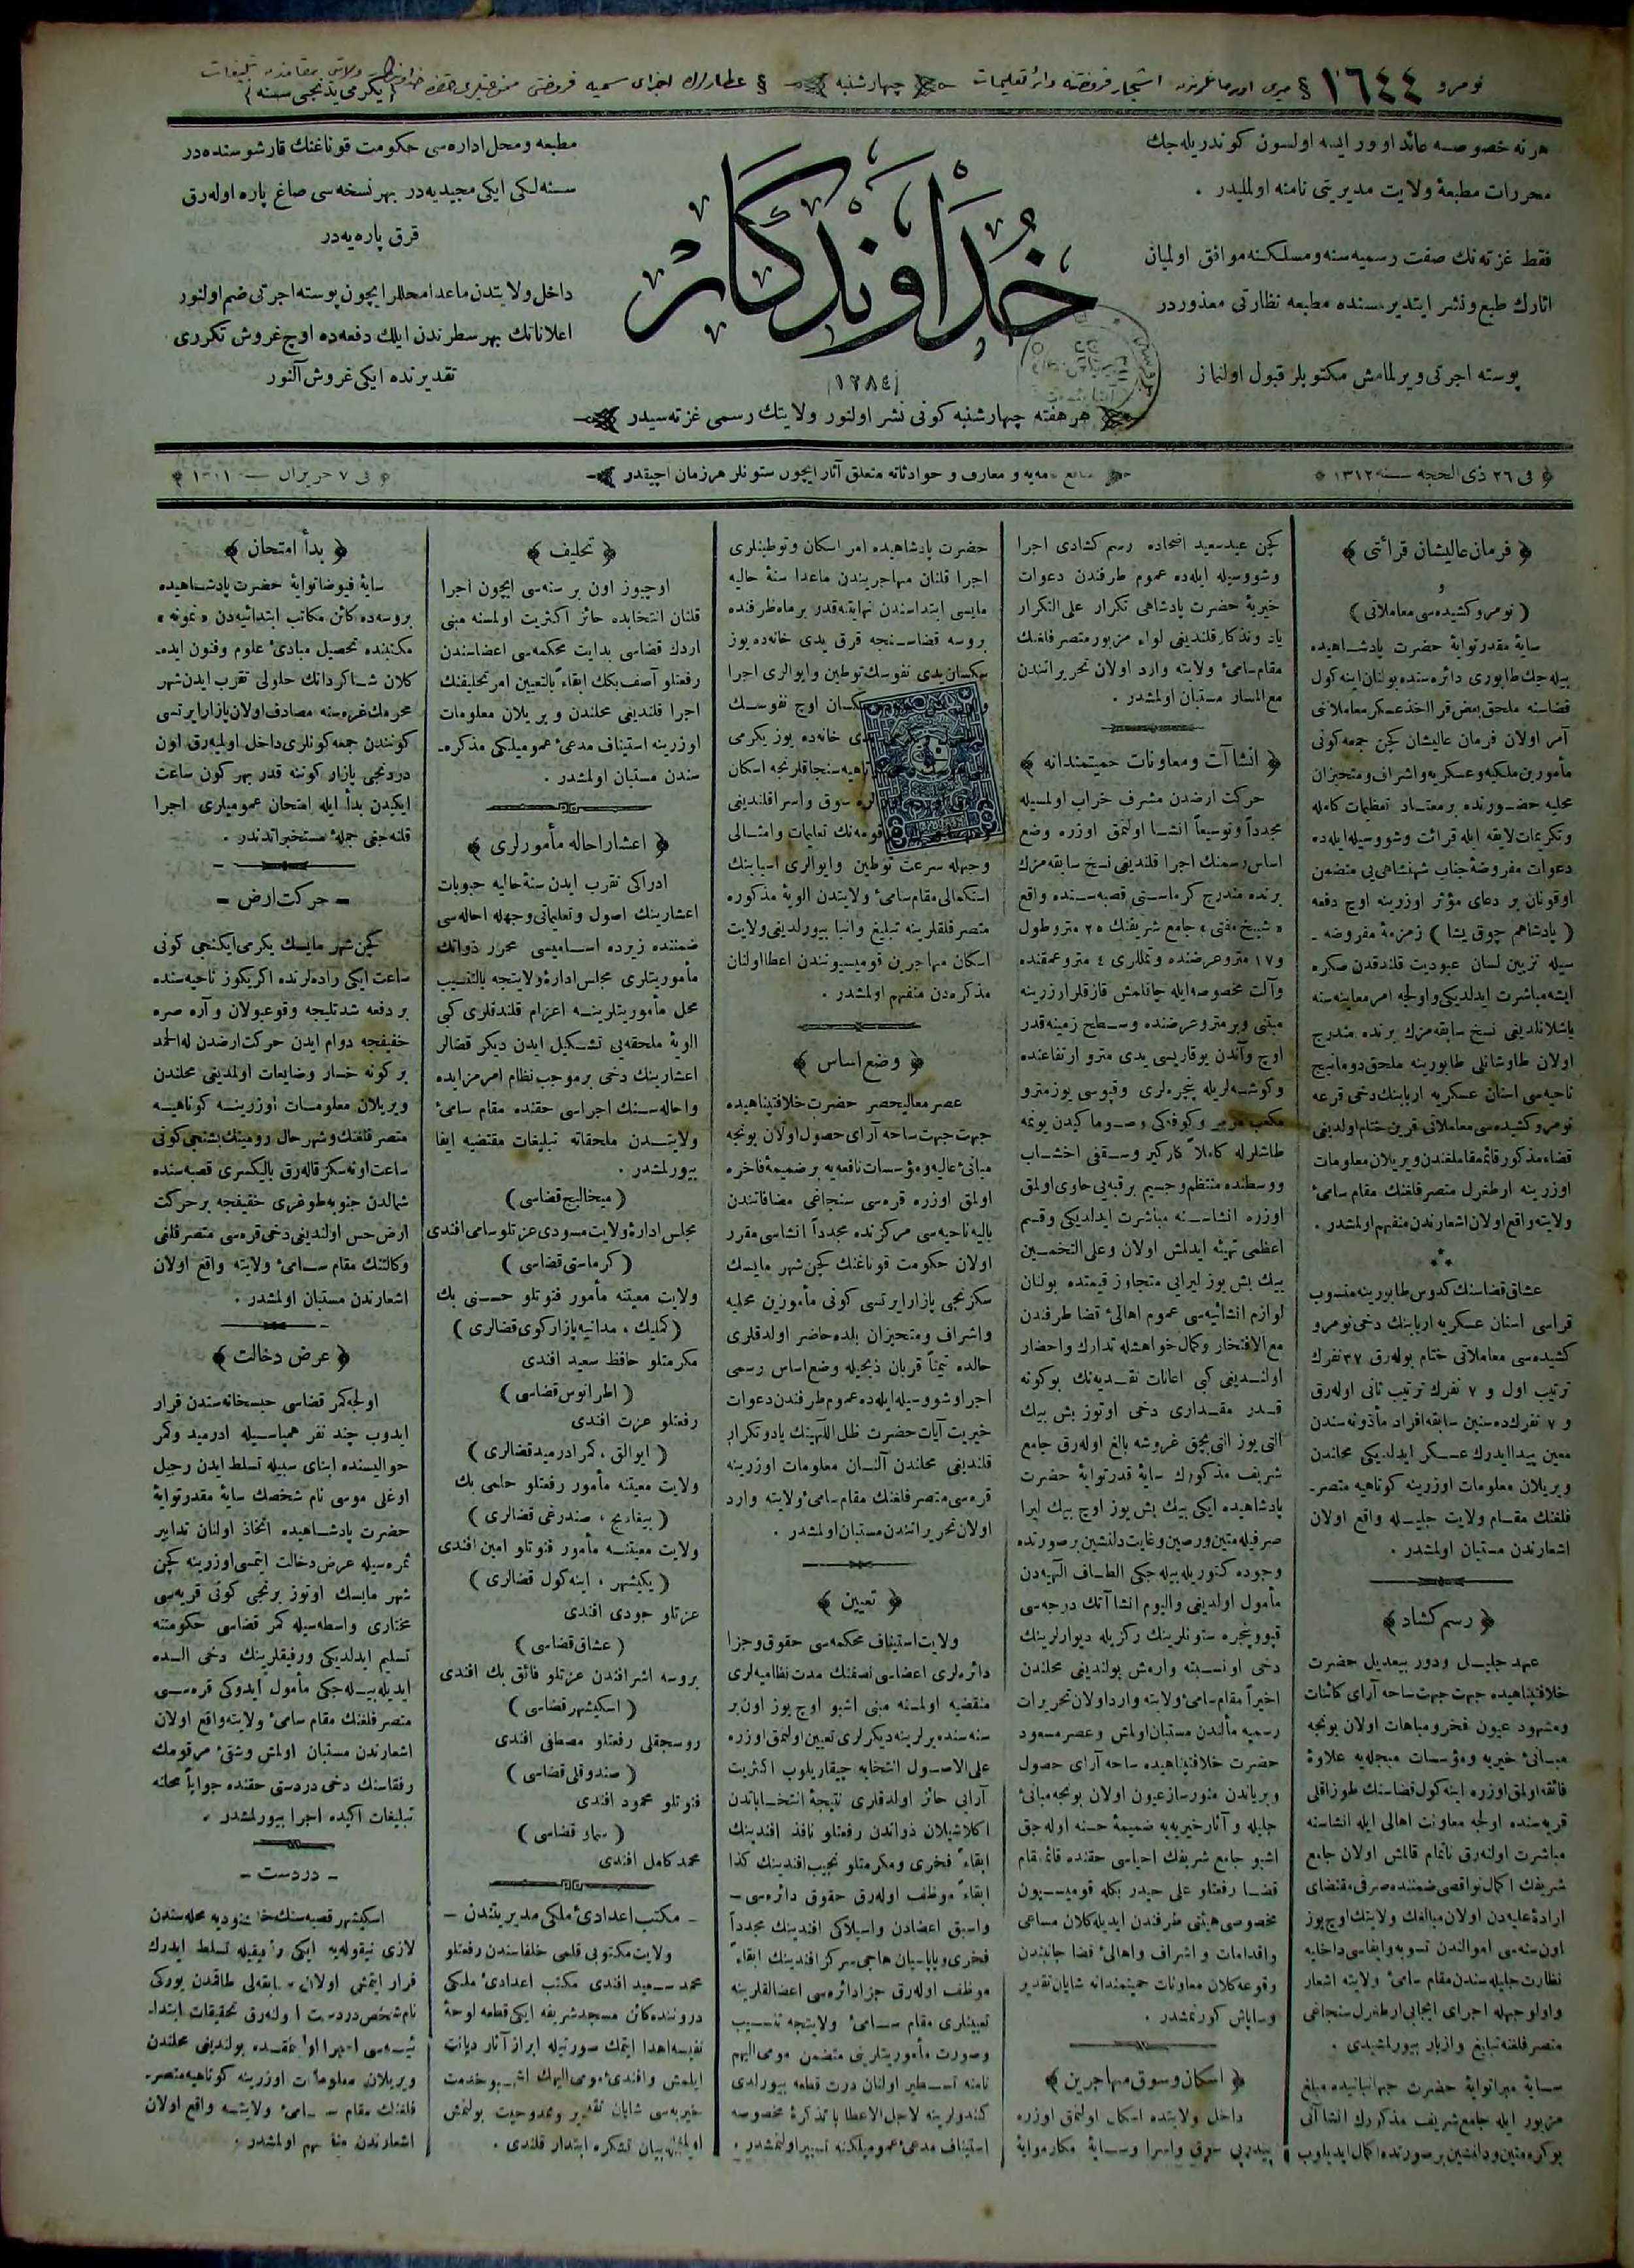 نومرو ١٦٤٤
چهارشنبه
يكرمی يدنجی سنه
هر نه خصوصه عائد اوور ايسه اولسون كوندريله جك
محررات مطبعۀ ولايت مديريتی نامنه اولمليدر .
فقط غزته نك صفت رسميه سنه و مسلكنه موافق اولميان
اثارك طبع و نشر ايتديرلمسنده مطبعه نظارتی معذوردر
پوسته اجرتی ويرلمامش مكتوبلر قبول اولنماز
خداوندكار
١٢٨٤
هر هفته چهارشنبه كونی نشر اولنور ولايتك رسمی غزته سيدر
مطبعه و محل اداره سی حكومت قوناغنك قارشوسنده در
سنه لكی ايكی مجيديه در بهر نسخه سی صاغ پاره اوله رق
قرق پاره يه در
داخل ولايتدن ماعدا محللر ايچون پوسته اجرتی ضم اولنور
اعلاناتك بهر سطرندن ايلك دفعه ده اوچ غروش تكرری
تقديرنده ايكی غروش آلنور
فی ٢٦ ذی الحجه سنه ١٣١٢
و معارف و حوادثاته متعلق آثار ايچون ستونلر هر زمان آچيقدر
فی ٧ حزيران
﴿ فرمان عاليشان قرائتی ﴾
و
( نومرو كشيده سی معاملاتی )
سايۀ مقدرتوايۀ حضرت پادشاهيده
بيله جك طابوری دائره سنده بولنان اينه كول
قضاسنه ملحق بعض قرا اخذ عسكر معاملاتنی
آمر اولان فرمان عاليشان كچن جمعه كونی
مأمورين ملكيه و عسكريه و اشراف و متحيزان
محليه حضورنده بر معتاد تعظيمات كامله
و تكريمات لايقه ايله قرائت و شو وسيله ايله ده
دعوات مفروضۀ جناب شهنشاهی يی متضمن
اوقونان بر دعای مؤثر اوزرينه اوچ دفعه
( پادشاهم چوق يشا ) زمزمۀ مفروضه ـ
سيله تزيين لسان عبوديت قلندقدن صكره
ايشه مباشرت ايدلديكی و اولجه امر معاينه سنه
باشلانلديغی نسخ سابقه مزك برنده مندرج
اولان طاوشانلی طابورينه ملحق دومانيج
ناحيه سی اسنان عسكريه اربابنك دخی قرعه
نومرو كشيده سی معاملاتی قرين ختام اولديغی
قضاء مذكور قائمقاملغندن ويريلان معلومات
اوزرينه ارطغرل متصرفلغنك مقام سامیء
ولايته واقع اولان اشعارندن منفهم اولمشدر .
عشاق قضاسنك كدوس طابورينه منسوب
قراسی اسنان عسكريه اربابنك دخی نومرو
كشيده سی معاملاتی ختام بوله رق ٣٧ نفرك
ترتيب اول و ٧ نفرك ترتيب ثانی اوله رق
و ٧ نفرك ده سنين سابقه افراد مأذونه سندن
معين پيدا ايدرك عسكر ايدلديكی محلندن
ويريلان معلومات اوزرينه كوتاهيه متصرـ
فلغنك مقام ولايت جليله واقع اولان
اشعارندن مستبان اولمشدر .
﴿ رسم كشاد ﴾
عهد جليل و دور بيعديل حضرت
خلافتپناهيده جهت جهت ساحه آرای كائنات
و مشهود عيون فخر و مباهات اولان بونجه
مبانیء خيريه و مؤسسات مبجله يه علاوۀ
فائقه اولمق اوزره اينه كول قضاسنك طوزاقلی
قريه سنده اولجه معاونت اهالی ايله انشاسنه
مباشرت اولنه رق ناتمام قالمش اولان جامع
شريفك اكمال نواقصی ضمننده صرفی مقتضای
ارادۀ عليه دن اولان مبالغك ولايتك اوچيوز
اون سنه سی اموالندن تسويه و ايفاسی داخليه
نظارت جليله سندن مقام سامیء ولايته اشعار
و اولوجهله اجرای ايجابی ارطغرل سنجاغی
متصرفلغنه تبليغ و ازبار بيورلمشيدی .
سايۀ ميراتوايۀ حضرت جهانبانيده مبلغ
مزبور ايله جامع شريف مذكورك انشاآتی
بو كره متين و دلنشين بر صورتده اكمال ايديلوب
كچن عيد سعيد اضحاده رسم كشادی اجرا
و شو وسيله ايله ده عموم طرفندن دعوات
خيريۀ حضرت پادشاهی تكرار علی التكرار
ياد و تذكار قلنديغی لواء مزبور متصرفلغنك
مقام سامیء ولايته وارد اولان تحريراتندن
مع المسار مستبان اولمشدر .
﴿ انشاآت و معاونات حميتمندانه ﴾
حركت ارضدن مشرف خراب اولمسيله
مجدداً و توسيعاً انشا اولنمق اوزره وضع
اساس رسمنك اجرا قلنديغی نسخ سابقه مزك
برنده مندرج كرماستی قصبه سنده واقع
« شيخ مفتی » جامع شريفنك ٢٥ مترو طول
و ١٧ مترو عرضنده و تمللری ٤ مترو عمقنده
و آلت مخصوصه ايله چاقلمش قازقلر اوزرينه
مبنی و بر مترو عرضنده و سطح زمينه قدر
اوچ و آندن يوقاريسی يدی مترو ارتفاعنده
و كوشه لريله پنجره لری و قپوسی يوز مترو
مكعب مرمر و كوفكی و صوما كيدن يونمه
طاشلرله كاملاً كاركير و سقفی اخشاب
و وسطنده منتظم و جسيم بر قبه يی حاوی اولمق
اوزره انشاسنه مباشرت ايدلديكی و قسم
اعظمی تهيئه ايدلمش اولان و علی التخمين
بيك بش يوز ليرايی متجاوز قيمتده بولنان
لوازم انشائيه سی عموم اهالیء قضا طرفندن
مع الافتخار و كمال خواهشله تدارك و احضار
اولنديغی كبی اعانات نقديه نك بو كونه
قدر مقداری دخی اوتوز بش بيك
التی يوز التی بچق غروشه بالغ اوله رق جامع
شريف مذكورك سايۀ قدرتوايۀ حضرت
پادشاهيده ايكی بيك بش يوز اوچ بيك ليرا
صرفيله متين و رصين و غايت دلنشين بر صورتده
وجوده كتوريله بيله جكی الطاف الٓهيه دن
مأمول اولديغی و اليوم انشاآتك درجه سی
قپو و پنجره ستونلرينك ركزيله ديوارلرينك
دخی او نسبته وارمش بولنديغی محلندن
اخيراً مقام سامیء ولايته وارد اولان تحريرات
رسميه مألندن مستبان اولمش و عصر مسعود
حضرت خلافتپناهيده ساحه آرای حصول
و بو ياندن منورساز عيون اولان بونجه مبانیء
جليله و آثار خيريه يه ضميمۀ حسنه اوله جق
اشبو جامع شريفك احياسی حقنده قائمقام
قضا رفعتلو علی حيدر بكله قوميسيون
مخصوصی هيئتی طرفندن ايديله كلان مساعی
و اقدامات و اشراف و اهالیء قضا جانبندن
وقوعه كلان معاونات حميتمندانه شايان تقدير
و ستايش كورلمشدر .
﴿ اسكان و سوق مهاجرين ﴾
داخل ولايتده اسكان اولنمق اوزره
پيدرپی سوق و اسرا و سايۀ مكارموايۀ
حضرت پادشاهيده امر اسكان و توطينلری
اجرا قلنان مهاجريندن ماعدا سنۀ حاليه
مايسی ابتداسندن نهايته قدر بر ماه ظرفنده
بروسه قضاسنجه قرق يدی خانه ده يوز
سكسان يدی نفوسك توطين و ايوالری اجرا
سكسان اوچ نفوسك
يدی خانه ده يوز يكرمی
سنجاقلرنجه اسكان
سوق و اسرا قلنديغی
قومه نك تعليمات و امثالی
وجهله سرعت توطين و ايوالری اسبابنك
استكمالی مقام سامیء ولايتدن الويۀ مذكوره
متصرفلقلرينه تبليغ و انبا بيورلديغی ولايت
اسكان مهاجرين قوميسيونندن اعطا اولنان
مذكره دن منفهم اولمشدر .
﴿ وضع اساس ﴾
عصر معاليحصر حضرت خلافتپناهيده
جهت جهت ساحه آرای حصول اولان بونجه
مبانیء عاليه و مؤسسات نافعه يه بر ضميمۀ فاخره
اولمق اوزره قره سی سنجاغی مضافاتندن
باليه ناحيه سی مركزنده مجدداً انشاسی مقرر
اولان حكومت قوناغنك كچن شهر مايسك
سكزنجی پازار ايرتسی كونی مأمورين محليه
و اشراف و متحيزان بلده حاضر اولدقلری
حالده تيمناً قربان ذبحيله وضع اساس رسمی
اجرا و شو وسيله ايله ده عموم طرفندن دعوات
خيريت آيات حضرت ظل اللّهينك ياد و تكرار
قلنديغی محلندن آلنان معلومات اوزرينه
قره سی متصرفلغنك مقام سامیء ولايته وارد
اولان تحريراتندن مستبان اولمشدر .
﴿ تعيين ﴾
ولايت استيناف محكمه سی حقوق و جزا
دائره لری اعضاسی نصفنك مدت نظاميه لری
منقضيه اولمسنه مبنی اشبو اوچ يوز اون بر
سنه سنده يرلرينه ديكرلری تعيين اولنمق اوزره
علی الاصول انتخابه چيقاريلوب اكثريت
آرايی حائز اولدقلری نتيجۀ انتخاباتدن
اكلاشيلان ذواتدن رفعتلو نافذ افندينك
ابقاءً فخری و مكرمتلو نجيب افندينك كذا
ابقاءً موظف اوله رق حقوق دائره سی ـ
و اسبق اعضادن و اسيلاكی افندينك مجدداً
فخری و باباسيان هاجی سركز افندينك ابقاءً
موظف اوله رق جزا دائره سی اعضالقلرينه
تعيينلری مقام سامیء ولايتجه تنسيب
و صورت مأموريتلرينی متضمن مومی اليهم
نامنه تسطير اولنان درت قطعه بيورلدی
كندولرينه لاجل الاعطا با مذكرۀ مخصوصه
استيناف مدعیء عموميلكنه تسيير اولنمشدر .
﴿ تحليف ﴾
اوچيوز اون بر سنه سی ايچون اجرا
قلنان انتخابده حائز اكثريت اولمسنه مبنی
اردك قضاسی بدايت محكمه سی اعضاسندن
رفعتلو آصف بكك ابقاءً بالتعيين امر تحليفنك
اجرا قلنديغی محلندن ويريلان معلومات
اوزرينه استيناف مدعیء عموميلكی مذكره ـ
سندن مستبان اولمشدر .
﴿ اعشار احاله مأمورلری ﴾
ادراكی تقرب ايدن سنۀ حاليه حبوبات
اعشارينك اصول و تعليماتی وجهله احاله سی
ضمننده زيرده اساميسی محرر ذواتك
مأموريتلری مجلس ادارۀ ولايتجه بالتنسيب
محل مأموريتلرينه اعزام قلندقلری كبی
الويۀ ملحقه يی تشكيل ايدن ديكر قضالر
اعشارينك دخی بر موجب نظام امر مزايده
و احاله سنك اجراسی حقنده مقام سامیء
ولايتدن ملحقاته تبليغات مقتضيه ايفا
بيورلمشدر .
( ميخاليج قضاسی )
مجلس ادارۀ ولايت مسودی عزتلو سامی افندی
( كرماستی قضاسی )
ولايت معيتنه مأمور فتوتلو حسنی بك
( كمليك ، مدانيه پازاركوی قضالری )
مكرمتلو حافظ سعيد افندی
( اطرانوس قضاسی )
رفعتلو عزت افندی
( ايوالق ، كمر ادرميد قضالری )
ولايت معيتنه مأمور رفعتلو حلمی بك
( بيغاديج ، صندرغی قضالری )
ولايت معيتنه مأمور فتوتلو امين افندی
( يكيشهر ، اينه كول قضالری )
عزتلو جودی افندی
( عشاق قضاسی )
بروسه اشرافندن عزتلو فائق بك افندی
( اسكيشهر قضاسی )
روسجقلی رفعتلو مصطفی افندی
( صندوقلی قضاسی )
فتوتلو محمود افندی
( سماو قضاسی )
محمد كامل افندی
ـ مكتب اعدادیء ملكی مديريتندن ـ
ولايت مكتوبی قلمی خلفاسندن رفعتلو
محمد سعيد افندی مكتب اعدادیء ملكی
دروننده كائن مسجد شريفه ايكی قطعه لوحۀ
نفيسه اهدا ايتمك صورتيله ابراز آثار ديانت
ايلمش و افندیء مومی اليهك اشبو خدمت
خيريه سی شايان تقدير و ممدوحيت بولنمش
اولمغله بيان تشكره ابتدار قلندی .
﴿ بدأ امتحان ﴾
سايۀ فيوضاتوايۀ حضرت پادشاهيده
بروسه ده كائن مكاتب ابتدائيه دن « نمونه »
مكتبنده تحصيل مبادیء علوم و فنون ايده ـ
كلان شاكردانك حلولی تقرب ايدن شهر
محرمك غره سنه مصادف اولان پازار ايرتسی
كونندن جمعه كونلری داخل اولميه رق اون
دردنجی پازار كوننه قدر بهر كون ساعت
ايكيدن بدأ ايله امتحان عموميلری اجرا
قلنه جغی جملۀ مستخبراتدندر .
ـ حركت ارض ـ
كچن شهر مايسك يكرمی ايكنجی كونی
ساعت ايكی راده لرنده اكريكوز ناحيه سنده
بر دفعه شدتليجه وقوعبولان و آره صره
خفيفجه دوام ايدن حركت ارضدن له الحمد
بر كونه خسار و ضايعات اولمديغی محلندن
ويريلان معلومات اوزرينه كوتاهيه
متصرفلغنك و شهر حال روميك بشنجی كونی
ساعت اونه سكز قاله رق باليكسری قصبه سنده
شمالدن جنوبه طوغری خفيفجه بر حركت
ارض حس اولنديغی دخی قره سی متصرفلغی
وكالتنك مقام سامیء ولايته واقع اولان
اشعارندن مستبان اولمشدر .
﴿ عرض دخالت ﴾
اولجه كمر قضاسی حبسخانه سندن فرار
ايدوب چند نفر همپاسيله ادرميد و كمر
حواليسنده ابنای سبيله تسلط ايدن رجيل
اوغلی موسی نام شخصك سايۀ مقدرتوايۀ
حضرت پادشاهيده اتخاذ اولنان تدابير
ثمره سيله عرض دخالت ايتمسی اوزرينه كچن
شهر مايسك اوتوز برنجی كونی قريه سی
مختاری واسطه سيله كمر قضاسی حكومتنه
تسليم ايدلديكی و رفيقلرينك دخی الده
ايديله بيله جكی مأمول ايدوكی قره سی
متصرفلغنك مقام سامیء ولايته واقع اولان
اشعارندن مستبان اولمش و شقیء مرقومك
رفقاسنك دخی دردستی حقنده جواباً محلنه
تبليغات اكيده اجرا بيورلمشدر .
ـ دردست ـ
اسكيشهر قصبه سنك محله سندن
لازی نيقوله يه ايكی رفيقيله تسلط ايدرك
فرار ايتمش اولان سابقه لی طاقمدن يوركی
نام شخص دردست اولنه رق تحقيقات ابتداـ
ئيسه سی اجرا اولنمقده بولنديغی محلندن
ويريلان معلومات اوزرينه كوتاهيه متصرـ
فلغنك مقام سامیء ولايته واقع اولان
اشعارندن منفهم اولمشدر .